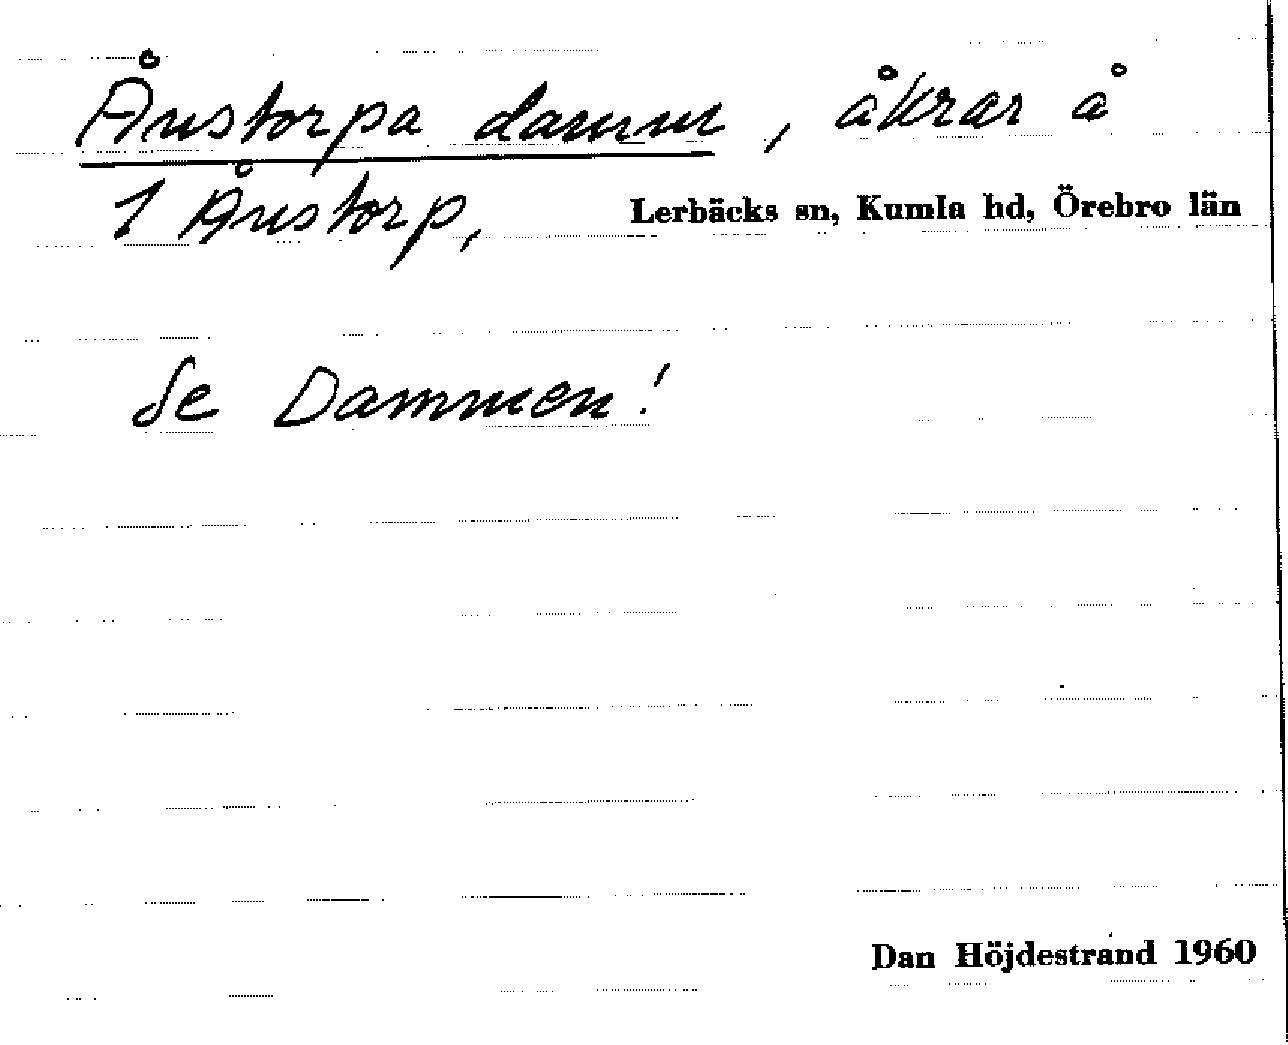 Ånstorpa damm, åkrar å
1 Ånstorp, Lerbäcks sn, Kumla hd, Örebro län
Se Dammen!
Dan Höjdestrand 1960